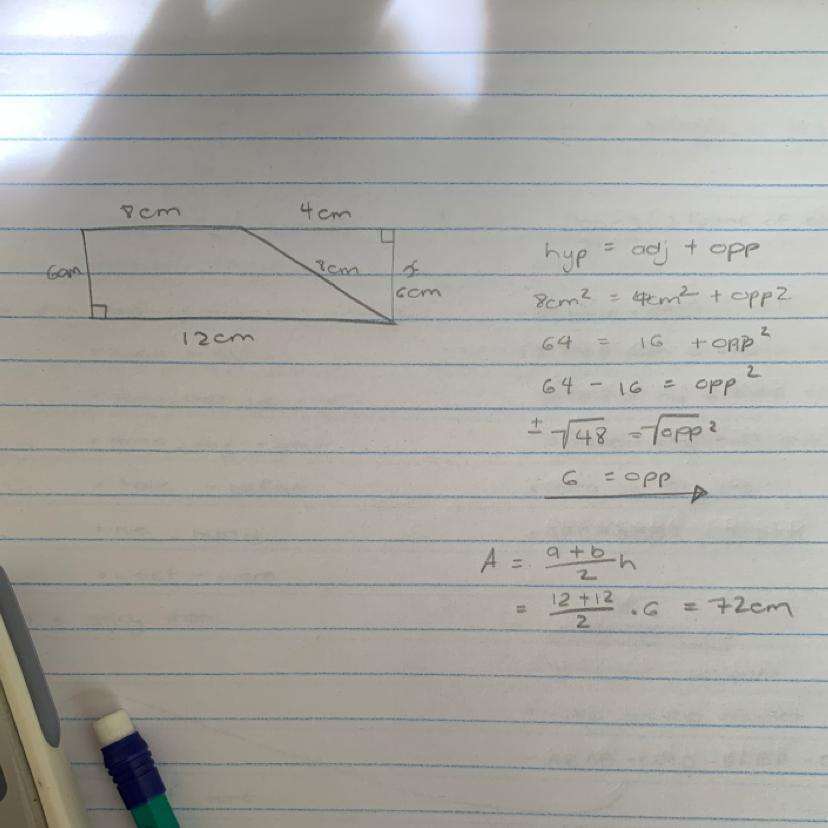 8cm 4cm
6cm 8cm x
6cm
12cm
hyp = adj + opp
8cm² = 4cm² + opp2
64 = 16 + opp²
64 - 16 = opp²
± √48 = √opp²
6 = opp
A = a + b / 2 h
= 12 + 12 / 2 . 6 = 72cm